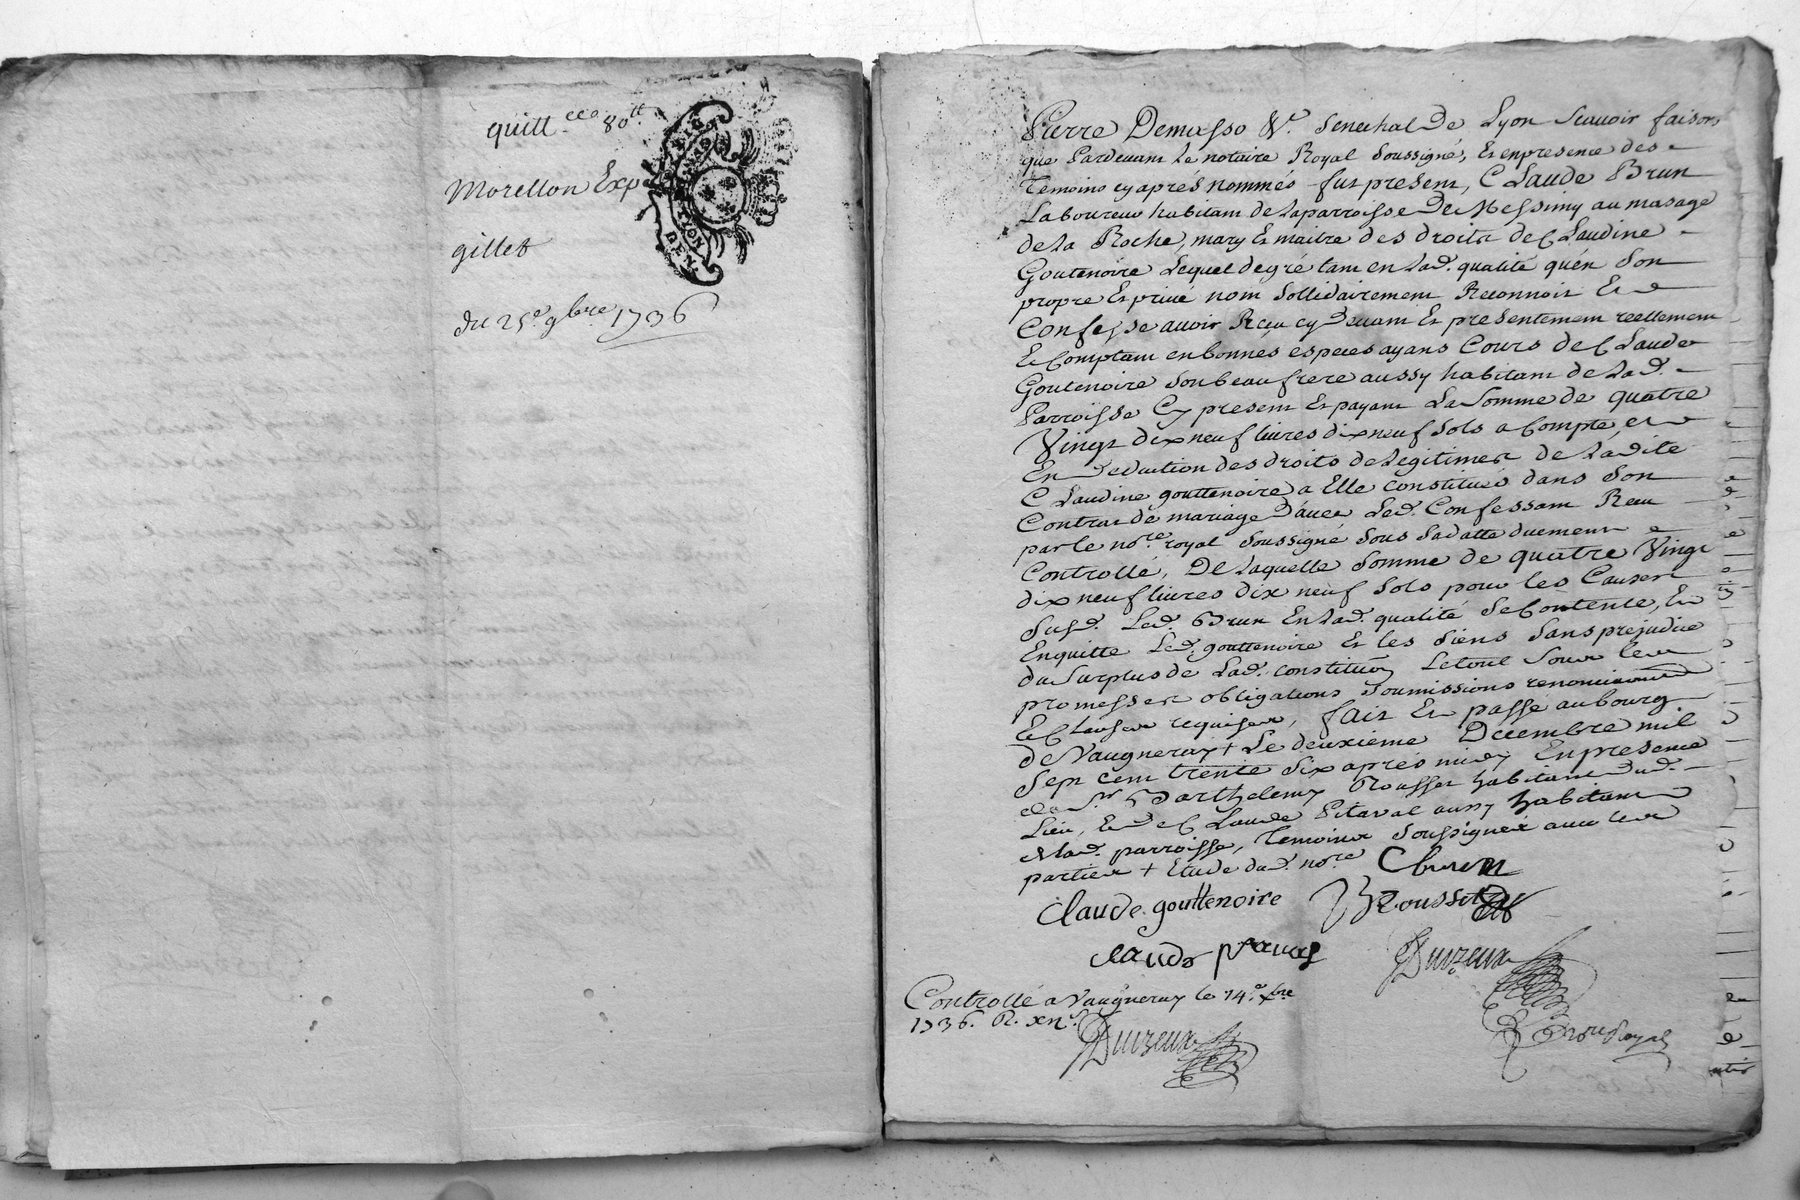 quitt.ce 80tt
Morellon Exp
GEN
LYON
gillet
du 25e 9bre 1736
Pierre Demasso Sr. Senechal De Lyon Scavoir faisons
que Pardevant Le notaire Royal Soussigné, Et enpresence des
Temoins cyaprés nommés fut present, Claude Brun
Laboureur habitant de laparroisse De Messimy au masage
de la Roche, mary Et maitre des droits de Claudine
Goutenoire Lequel degré tant en Lad. qualité quen Son
propre Et privé nom Sollidairement Reconnoit Et
Confesse avoir Reçu cy Devant Et presentement reellement
Et Comptant en bonnes especes ayans Cours de Claude
Goutenoire Son beau frere aussy habitant de Lad.
Parroisse Cy present Et payant La Somme de quatre
Vingt dix neuf livres dix neuf Sols a Compte, et
En Deduction des droits de Legitimes de Ladite
Claudine gouttenoire a Elle constitués dans Son
Contrat de mariage D'avec Led. Confessant Receu
par le nore. royal Soussigné Sous Sa datte duement
Controllé, De Laquelle Somme de quatre Vingt
dix neuf livres dix neuf Sols pour les Causes
Susd. Led. Brun En Lad. qualité Se Contente, Et
Enquitte Led. gouttenoire Et les Siens Sans prejudice
du Surplus de Lad. constituon Le tout Sous les
promesses obligations Soumissions renonciations
Et Clauses requises, fait Et passé au bourg
de Vaugneray + Le deuxieme Decembre mil
Sept cent trente Six apres midy En presence
de Sr. Barthelemy Rousset habitant Dud.
Lieu, Et de Claude Pitaval aussy habitant
de lad. parroisse, Temoins Soussignés avec les
parties + Etude dud. nore
C brun
Claude gouttenoire B Rousset
claude pitaval
Duizeux
Controllé a Vaugneray le 14e. xbre
1736. R.
Duizeux
nore Royal